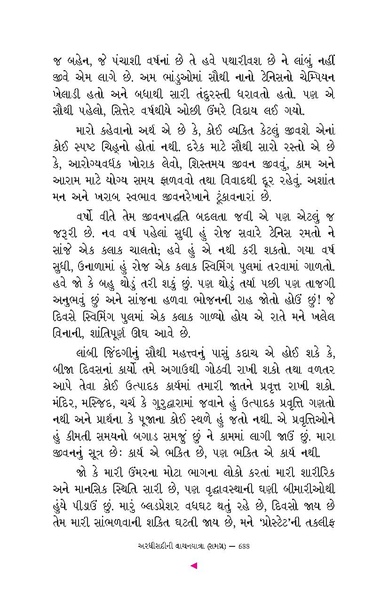 જ બહેન, જે પંચાશી વર્ષનાં છે તે હવે પથારીવશ છે ને લાંબું નહીં
જીવે એમ લાગે છે. અમ ભાંડુઓમાં સૌથી નાનો ટેનિસનો ચેમ્પિયન
ખેલાડી હતો અને બધાથી સારી તંદુરસ્તી ધરાવતો હતો. પણ એ
સૌથી પહેલો, સિત્તેર વર્ષથીયે ઓછી ઉંમરે વિદાય લઈ ગયો.
મારો કહેવાનો અર્થ એ છે કે, કોઈ વ્યક્તિ કેટલું જીવશે એનાં
કોઈ સ્પષ્ટ ચિહ્નો હોતાં નથી. દરેક માટે સૌથી સારો રસ્તો એ છે
કે, આરોગ્યવર્ધક ખોરાક લેવો, શિસ્તમય જીવન જીવવું, કામ અને
આરામ માટે યોગ્ય સમય ફાળવવો તથા વિવાદથી દૂર રહેવું. અશાંત
મન અને ખરાબ સ્વભાવ જીવનરેખાને ટૂંકાવનારાં છે.
વર્ષો વીતે તેમ જીવનપદ્ધતિ બદલતા જવી એ પણ એટલું જ
જરૂરી છે. નવ વર્ષ પહેલાં સુધી હું રોજ સવારે ટેનિસ રમતો ને
સાંજે એક કલાક ચાલતો; હવે હું એ નથી કરી શકતો. ગયા વર્ષ
સુધી, ઉનાળામાં હું રોજ એક કલાક સ્વિમિંગ પુલમાં તરવામાં ગાળતો.
હવે જો કે બહુ થોડું તરી શકું છું. પણ થોડું તર્યા પછી પણ તાજગી
અનુભવું છું અને સાંજના હળવા ભોજનની રાહ જોતો હોઉં છું! જે
દિવસે સ્વિમિંગ પુલમાં એક કલાક ગાળ્યો હોય એ રાતે મને ખલેલ
વિનાની, શાંતિપૂર્ણ ઊંઘ આવે છે.
લાંબી જિંદગીનું સૌથી મહત્ત્વનું પાસું કદાચ એ હોઈ શકે કે,
બીજા દિવસનાં કાર્યો તમે અગાઉથી ગોઠવી રાખી શકો તથા વળતર
આપે તેવા કોઈ ઉત્પાદક કાર્યમાં તમારી જાતને પ્રવૃત્ત રાખી શકો.
મંદિર, મસ્જિદ, ચર્ચ કે ગુરુદ્વારામાં જવાને હું ઉત્પાદક પ્રવૃત્તિ ગણતો
નથી અને પ્રાર્થના કે પૂજાના કોઈ સ્થળે હું જતો નથી. એ પ્રવૃત્તિઓને
હું કીમતી સમયનો બગાડ સમજું છું ને કામમાં લાગી જાઉં છું. મારા
જીવનનું સૂત્ર છેઃ કાર્ય એ ભક્તિ છે, પણ ભક્તિ એ કાર્ય નથી.
જો કે મારી ઉંમરના મોટા ભાગના લોકો કરતાં મારી શારીરિક
અને માનસિક સ્થિતિ સારી છે, પણ વૃદ્ધાવસ્થાની ઘણી બીમારીઓથી
હુંયે પીડાઉં છું. મારું બ્લડપ્રેશર વધઘટ થતું રહે છે, દિવસો જાય છે
તેમ મારી સાંભળવાની શક્તિ ઘટતી જાય છે, મને 'પ્રોસ્ટેટ'ની તકલીફ
અરધીસદીની વાચનયાત્રા (સમગ્ર) — ૬૪૪